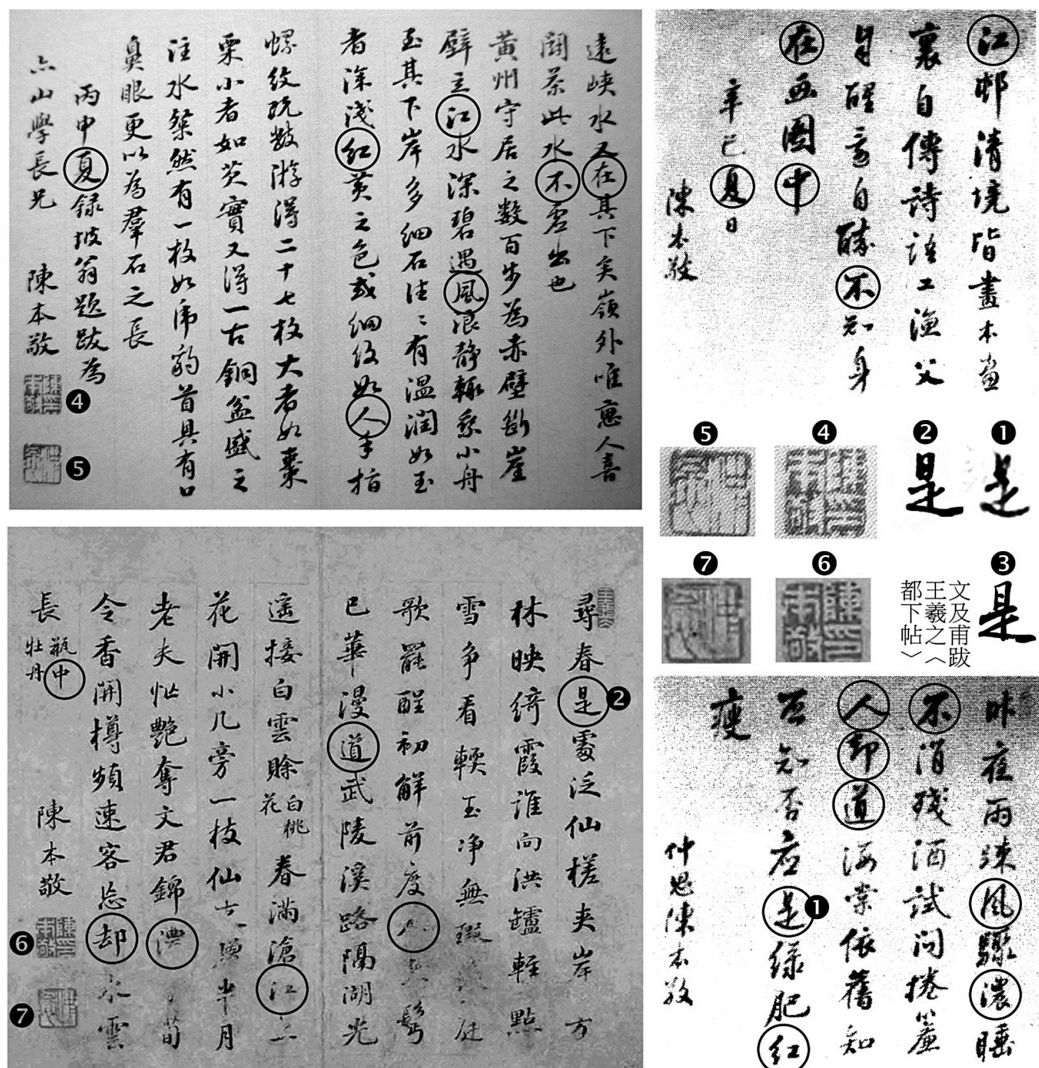 遠峽水又在其下矣嶺外唯惠人喜
鬪茶此水不虛出也
黃州守居之數百步為赤壁斷崖
壁立江水深碧遇風浪靜輒乘小舟
至其下岸多細石往〻有溫潤如玉
者深淺紅黃之色或細紋如人手指
螺紋既數游得二十七枚大者如棗
栗小者如芡實又得一古銅盆盛之
注水粲然有一枚如虎豹首具有口
鼻眼更以為羣石之長
丙申夏錄坡翁題跋為
六山學長兄 陳本敬
❹
❺
江邨清境皆畫本畫
裏自傳詩語工漁父
自醒還自醉不知身
在画圖中
辛巳夏日
陳本敬
❶ 是
❷ 是
❹ 陳印本敬
❺
❸ 是
文及甫跋
王羲之〈
都下帖〉
❻ 陳印本敬
❼
尋春是處泛仙槎夹岸方
林映綺霞誰向洪罏輕點
雪爭看輭玉淨無瑕 庭
歌罷醒初解前度人 鬂
已華漫道武陵溪路隔湖光
遙接白雲賒 白桃花 春滿滄江上
花開小几旁一枝仙 半月
老夫忙艷奪文君錦濃 荀
令香開樽頻速客忘却水雲
長 瓶中牡丹 陳本敬
❷
❻
❼
昨夜雨疎風驟濃睡
不消殘酒試問捲簾
人却道海棠依舊知
否知否应是绿肥红
瘦
仲思陳本敬
❶